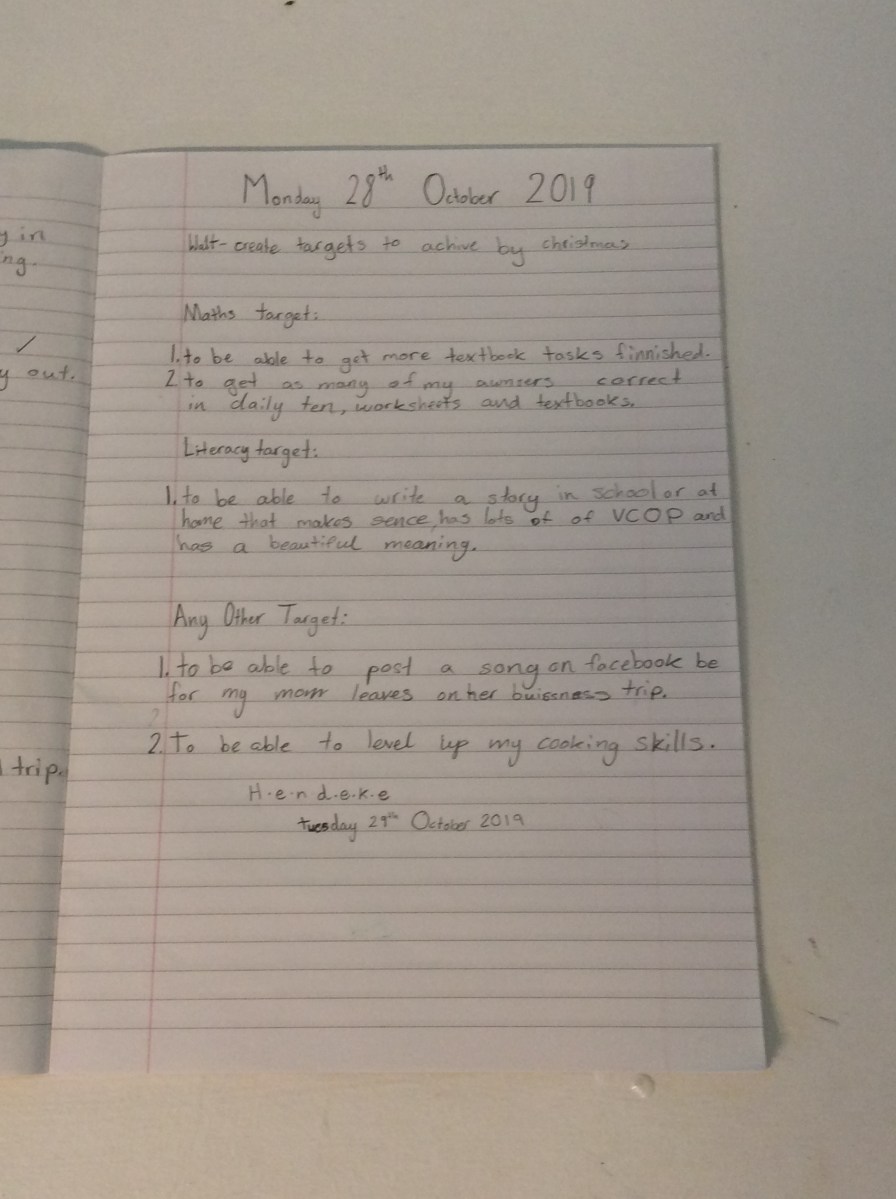 Monday 28th October 2019
y in
Walt-create targets to achive by christmas
ng.
Maths target:
1. to be able to get more textbook tasks finnished.
y out.
2 to get as many of my awnsers correct
in daily ten, worksheets and textbooks.
Literacy target:
1. to be able to write a story in school or at
home that makes sence, has lots of of VCOP and
has a beautiful meaning.
Any Other Target:
1. to be able to post a song on facebook be
for my mom leaves on her buissness trip.
2. To be able to level up my cooking skills.
trip.
H.e.n d.e.k.e
tuesday 29th October 2019